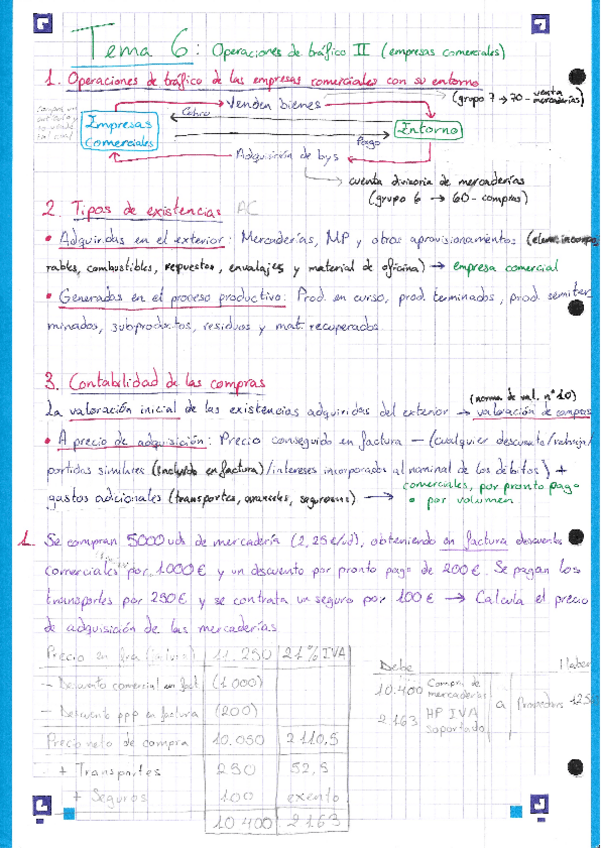 Tema 6: Operaciones de tráfico II (empresas comerciales)
1. Operaciones de tráfico de las empresas comerciales con su entorno
Venden bienes
(grupo 7 → 70 - venta mercaderías)
Cobro
Empresas Comerciales
Entorno
Pago
Adquisición de bys
cuenta divisoria de mercaderías
(grupo 6 → 60 - compras)
2. Tipos de existencias AC
• Adquiridas en el exterior: Mercaderías, MP y otros aprovisionamientos (elem. incorpo
rables, combustibles, repuestos, envalajes y material de oficina) → empresa comercial
• Generadas en el proceso productivo: Prod. en curso, prod. terminados, prod. semiter
minados, subproductos, residuos y mat. recuperados
3. Contabilidad de las compras
(norma de val. nº 10)
La valoración inicial de las existencias adquiridas del exterior → valoración de compras
• A precio de adquisición: Precio conseguido en factura - (cualquier descuento/rebaja/
partidas similares (incluido en factura)/intereses incorporados al nominal de los débitos) +
gastos adicionales (transportes, aranceles, seguros...) → comerciales, por pronto pago
o por volumen
1. Se compran 5000 uds de mercadería (2,25€/ud), obteniendo en factura descuentos
comerciales por 1000€ y un descuento por pronto pago de 200€. Se pagan los
transportes por 250€ y se contrata un seguro por 100€ → Calcula el precio
de adquisición de las mercaderías
Precio en fra 11.250 21% IVA
- Descuento comercial en fact (1000)
- Descuento ppp en factura (200)
Precio neto de compra 10.050 2110,5
+ Transportes 250 52,5
+ Seguros 100 exento
10400 2163
Debe Haber
10.400 Compra de mercaderías
a Proveedores
2163 HP IVA soportado